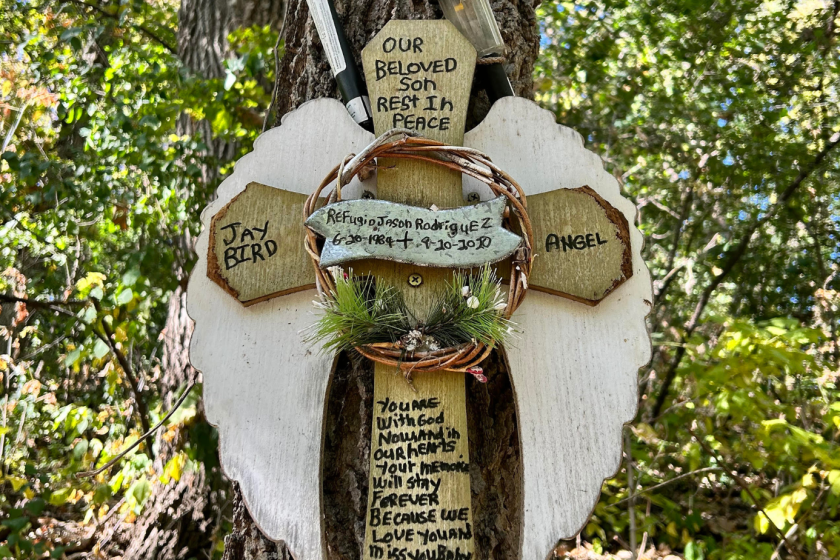 OUR
BELOVED
Son
REST In
PEACE
REFugioJason RodriguEZ
6-20-1984 † 9-20-2020
JAY
BIRD
ANGEL
YOU ARE
With God
Now And in
OUR hEARTS
Your memorie
Will stay
FOREVER
BECAUSE WE
LOVE YOU AND
missYou Baby